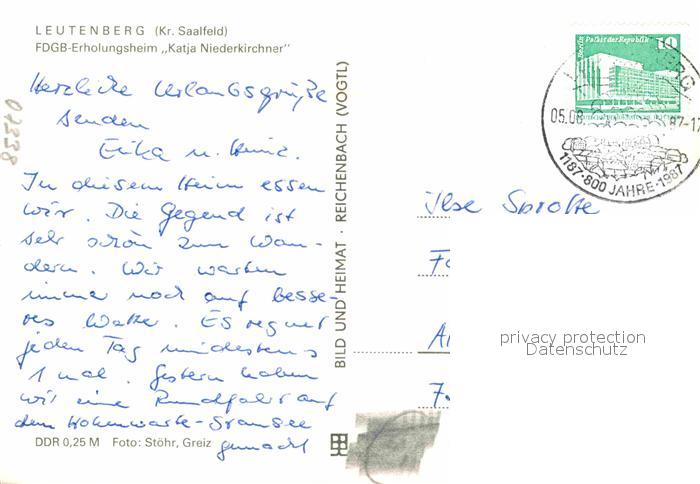 LEUTENBERG (Kr. Saalfeld)
FDGB-Erholungsheim „Katja Niederkirchner"
Herzliche Urlaubsgrüße
senden
Erika u. Heinz.
In diesem Heim essen
wir. Die Gegend ist
sehr schön zum Wan-
dern. Wir warten
immer noch auf besse-
res Wetter. Es regnet
jeden Tag mindestens
1 mal. Gestern haben
wir eine Rundfahrt auf
dem Hohenwarte-Stausee
gemacht
DDR 0,25 M Foto: Stöhr, Greiz
01338
BILD UND HEIMAT · REICHENBACH (VOGTL)
Berlin, Palast der Republik
10
05.08.
87-17
1187·800 JAHRE·1987
Ilse Sprotte
privacy protection
Datenschutz